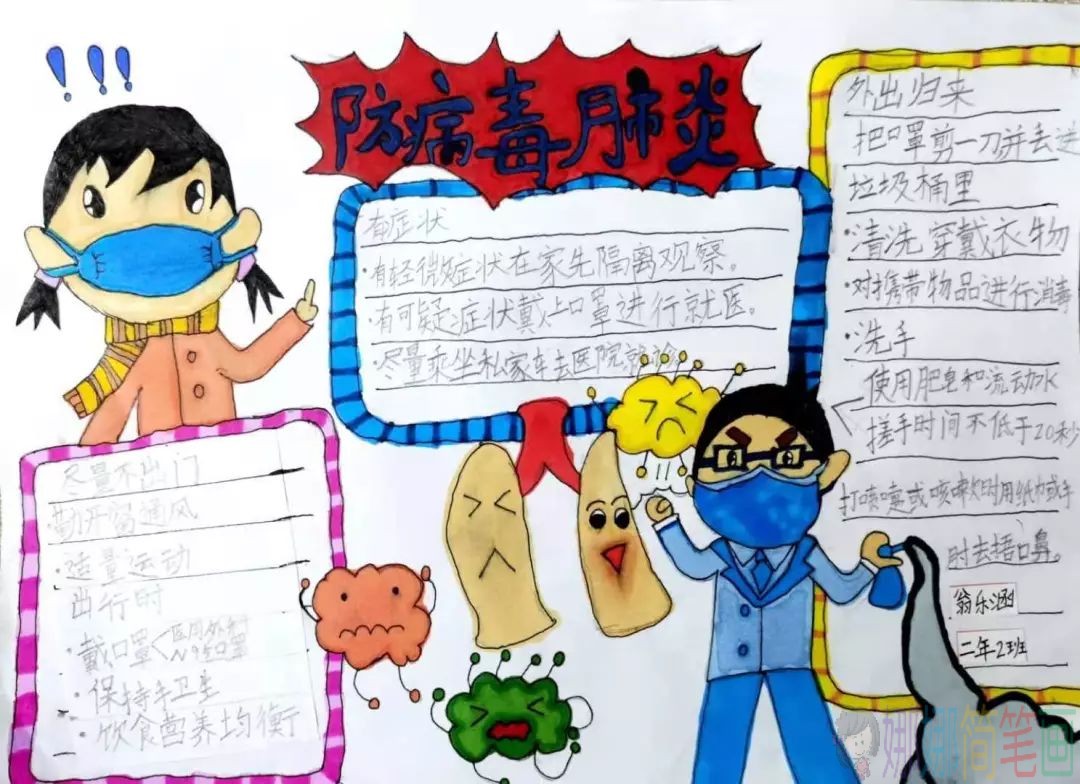 !!!
防病毒肺炎
有症状
·有轻微症状在家先隔离观察。
·有可疑症状戴上口罩进行就医。
·尽量乘坐私家车去医院就诊
尽量不出门
勤开窗通风
·适量运动
出行时
·戴口罩<医用外科
N95口罩
·保持手卫生
·饮食营养均衡
外出归来
把口罩剪一刀并丢进
垃圾桶里
·清洗穿戴衣物
·对携带物品进行消毒
·洗手
使用肥皂和流动水
搓手时间不低于20秒
打喷嚏或咳嗽时用纸巾或手
肘去捂口鼻。
翁乐涵
二年2班
娜娜简笔画